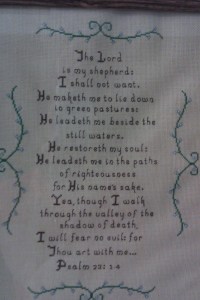 The Lord
is my shepherd:
I shall not want.
He maketh me to lie down
in green pastures:
He leadeth me beside the
still waters.
He restoreth my soul:
He leadeth me in the paths
of righteousness
for His name's sake.
Yea, though I walk
through the valley of the
shadow of death,
I will fear no evil: for
Thou art with me...
Psalm 23: 1-4